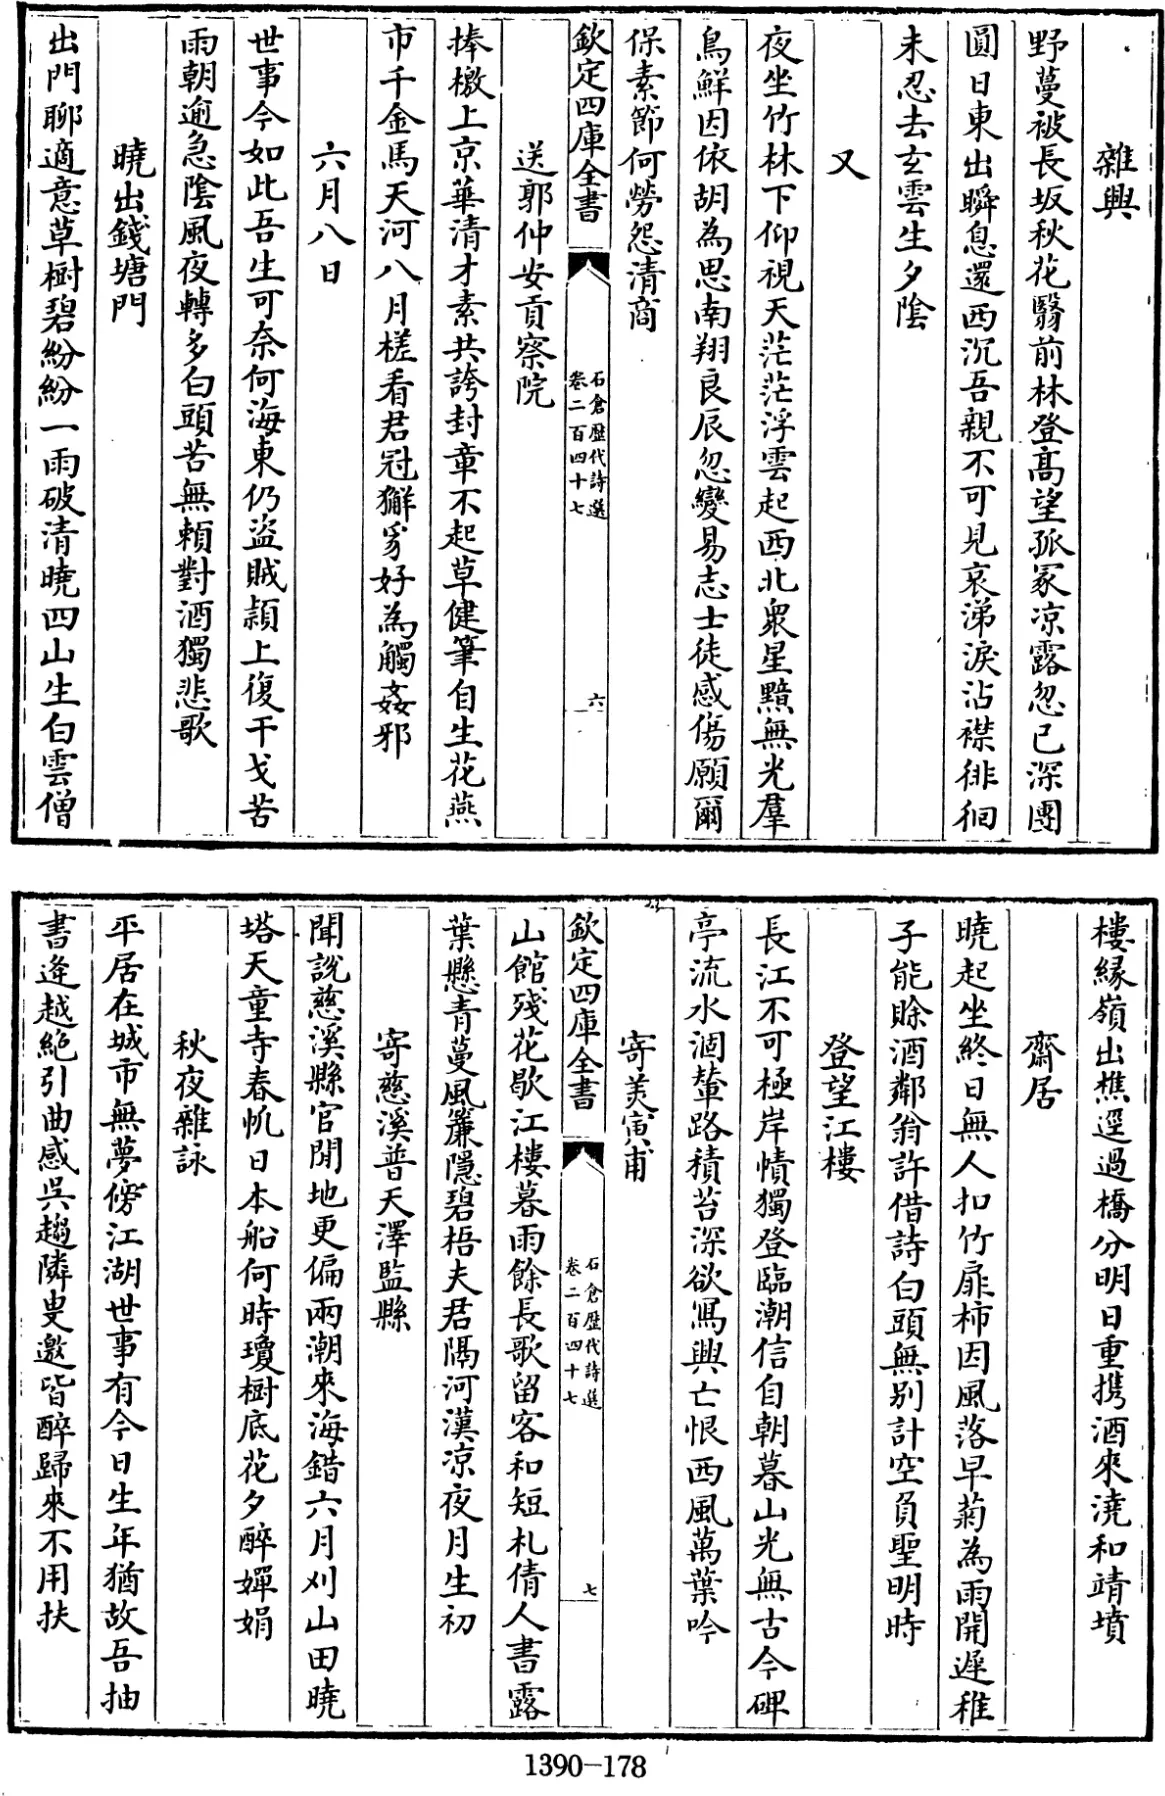 雜興
野蔓被長坂秋花翳前林登髙望孤冢凉露忽已深團
圓日東出瞬息還西沉吾親不可見哀涕淚沾襟徘徊
未忍去玄雲生夕陰
又
夜坐竹林下仰視天茫茫浮雲起西北衆星黯無光羣
鳥鮮因依胡為思南翔良辰忽變易志士徒感傷願爾
保素節何勞怨清商
欽定四庫全書
石倉歴代詩選
卷二百四十七
六
送郭仲安貢察院
捧檄上京華清才素共誇封章不起草健筆自生花燕
市千金馬天河八月槎看君冠獬豸好為觸姦邪
六月八日
世事今如此吾生可奈何海東仍盗賊頴上復干戈苦
雨朝逾急陰風夜轉多白頭苦無頼對酒獨悲歌
曉出錢塘門
出門聊適意草樹碧紛紛一雨破清曉四山生白雲僧
樓緣嶺出樵逕過橋分明日重携酒來澆和靖墳
齋居
曉起坐終日無人扣竹扉柿因風落早菊為雨開遲稚
子能賒酒鄰翁許借詩白頭無别計空負聖明時
登望江樓
長江不可極岸幘獨登臨潮信自朝暮山光無古今碑
亭流水涸輦路積苔深欲寫興亡恨西風萬葉吟
寄美寅甫
欽定四庫全書
石倉歴代詩選
卷二百四十七
七
山館殘花歇江樓暮雨餘長歌留客和短札倩人書露
葉懸青蔓風簾隱碧梧夫君隔河漢凉夜月生初
寄慈溪普天澤監縣
聞説慈溪縣官閒地更偏兩潮來海錯六月刈山田曉
塔天童寺春帆日本船何時瓊樹底花夕醉嬋娟
秋夜雜詠
平居在城市無夢傍江湖世事有今日生年猶故吾抽
書逢越絶引曲感吳趨隣叟邀皆醉歸來不用扶
1390-178